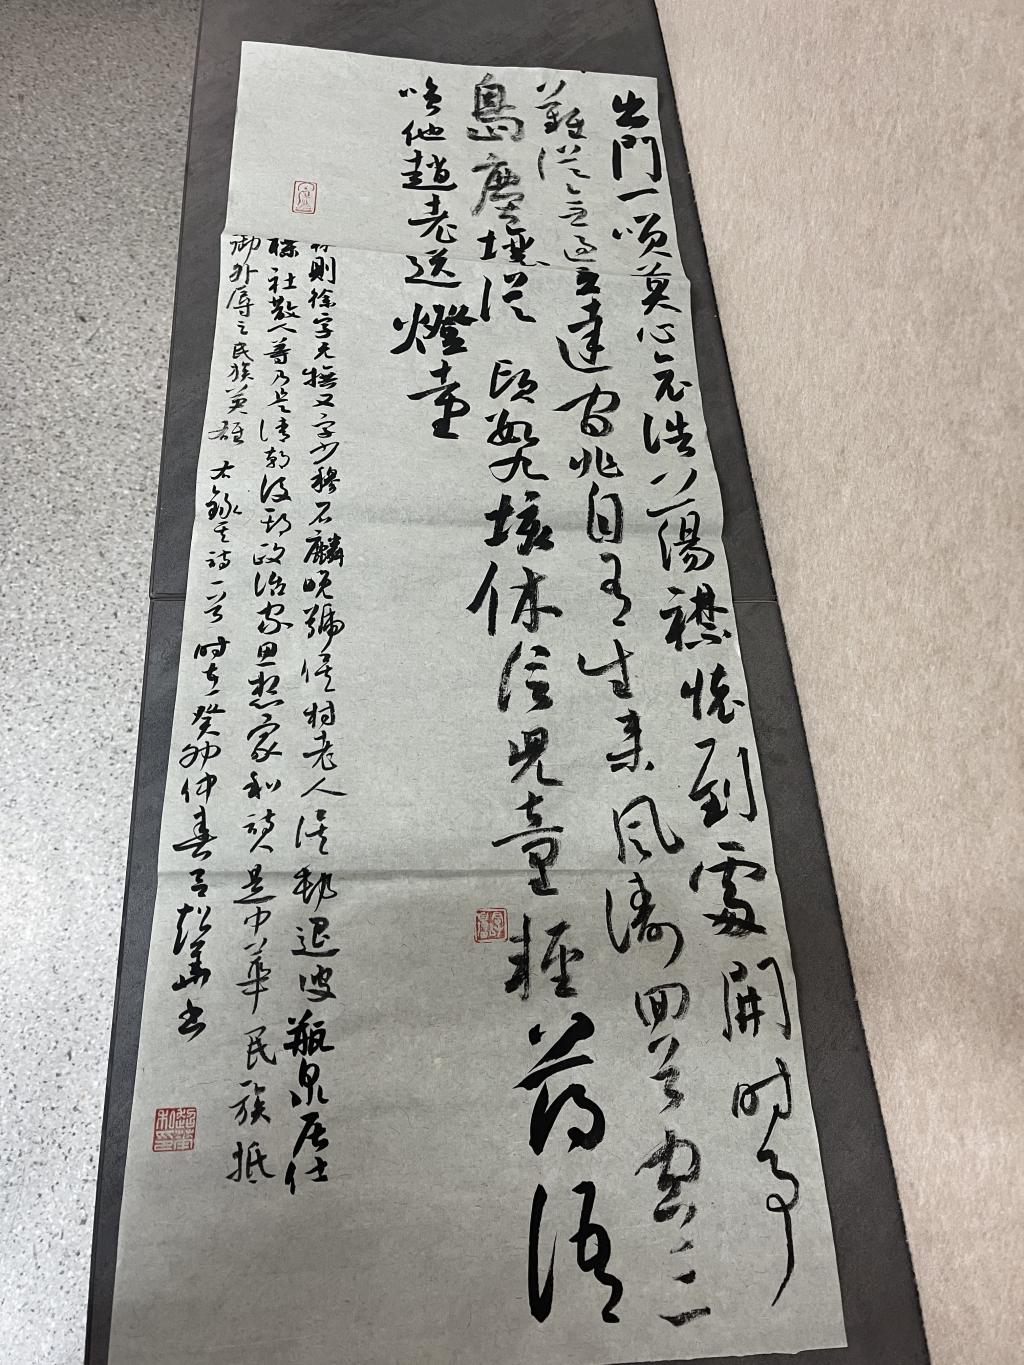 出門一咲莫心哀浩蕩襟懷到處開時事
難從無過立達官非自有生來風濤回首空三
島塵壤從頭數九垓休信兒童輕薄語
嗤他趙老送燈臺
林則徐字元撫又字少穆石麟晚號俟村老人俟邨退叟瓶泉居仕
櫟社散人等乃是清朝後期政治家思想家和詩人是中華民族抵
御外辱之民族英雄 右錄其詩一首 時在癸卯仲春 華書